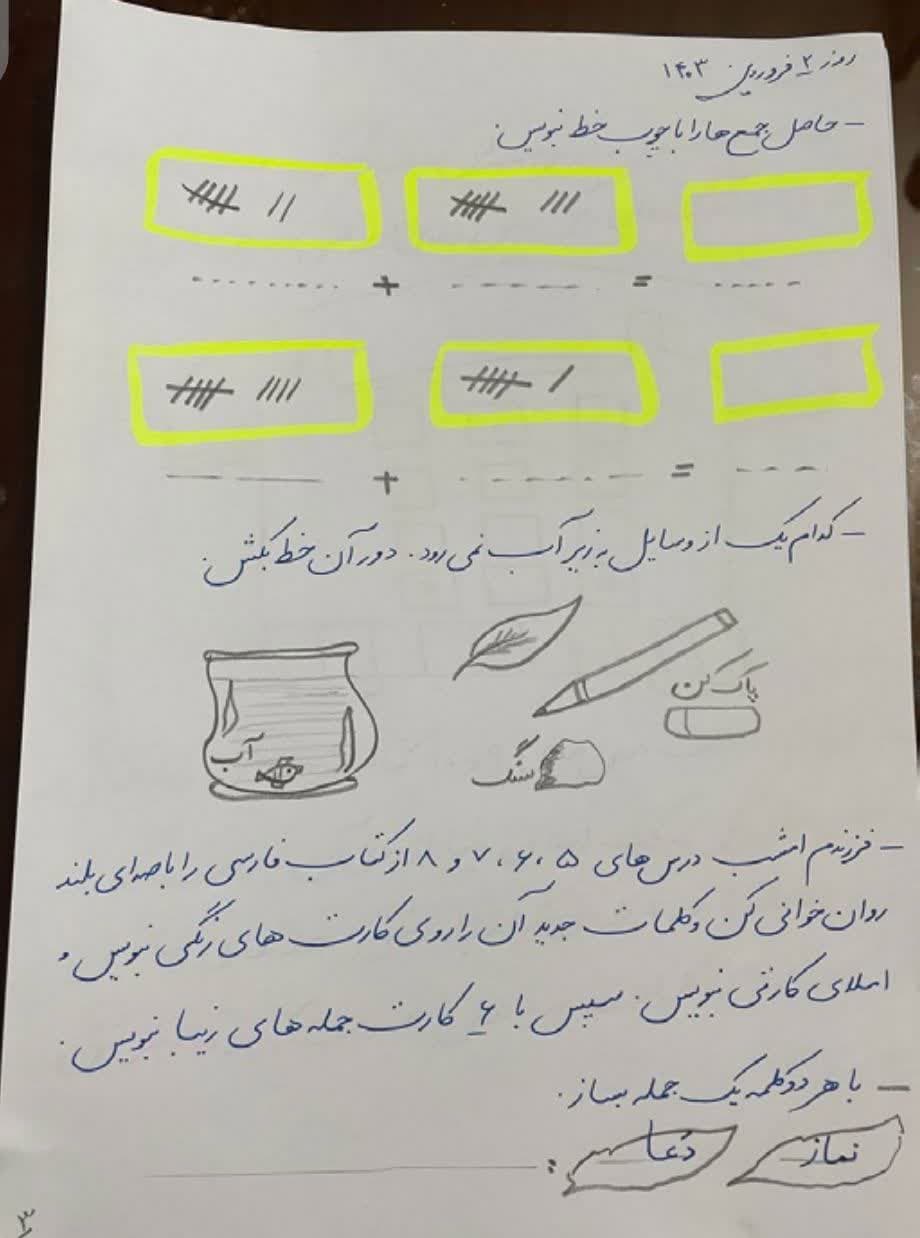 روز ۲ فروردین ۱۴۰۳
- حاصل جمع ها را با چوب خط بنویس.
+ =
+ =
- کدام یک از وسایل به زیر آب نمی رود. دور آن خط بکش.
پاک کن
آب
سنگ
- فرزندم امشب درس های ۵، ۶، ۷ و ۸ از کتاب فارسی را با صدای بلند
روان خوانی کن و کلمات جدید آن را روی کارت های رنگی بنویس و
املای کارتی بنویس. سپس با ۶ کارت جمله های زیبا بنویس.
- با هر دو کلمه یک جمله بساز.
نماز دعا :
۳